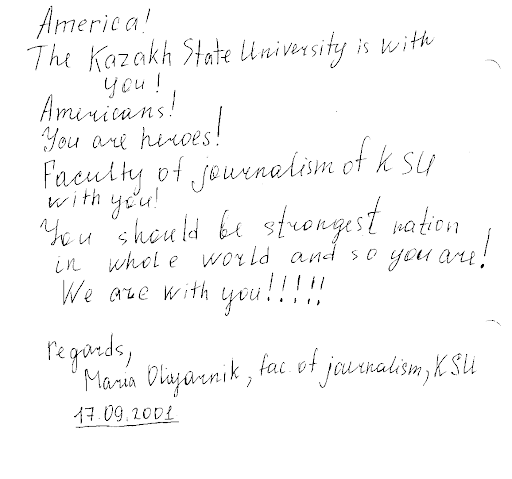 America!
The Kazakh State University is with
you!
Americans!
You are heroes!
Faculty of journalism of KSU
with you!
You should be strongest nation
in whole world and so you are!
We are with you!!!!!
regards,
Maria, fac. of journalism, KSU
17.09.2001